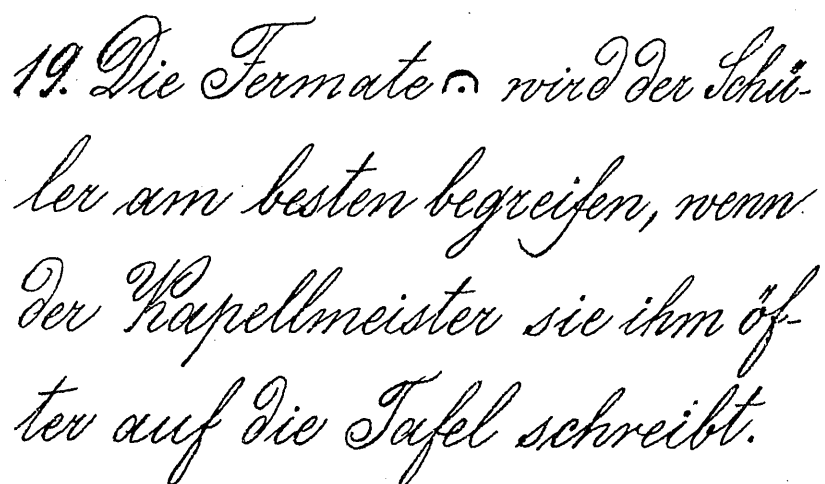 19. Die Fermate 𝄐 wird der Schü-
ler am besten begreifen, wenn
der Kapellmeister sie ihm öf-
ter auf die Tafel schreibt.